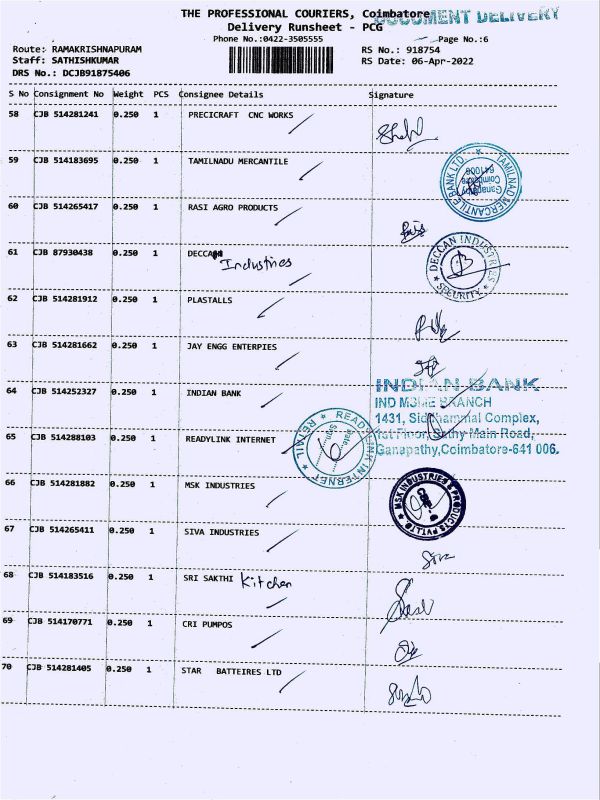 THE PROFESSIONAL COURIERS, Coimbatore
DOCUMENT DELIVERY
Delivery Runsheet - PCG
Phone No.:0422-3505555
Page No.:6
Route: RAMAKRISHNAPURAM
RS No.: 918754
Staff: SATHISHKUMAR
RS Date: 06-Apr-2022
DRS No.: DCJB91875406
S No Consignment No Weight PCS Consignee Details Signature
58 CJB 514281241 0.250 1 PRECICRAFT CNC WORKS
59 CJB 514183695 0.250 1 TAMILNADU MERCANTILE
TAMILNAD MERCANTILE BANK LTD
Ganapathy
Coimbatore
641006
60 CJB 514265417 0.250 1 RASI AGRO PRODUCTS
61 CJB 87930438 0.250 1 DECCAN Industries
DECCAN INDUSTRIES
SECURITY
62 CJB 514281912 0.250 1 PLASTALLS
63 CJB 514281662 0.250 1 JAY ENGG ENTERPIES
64 CJB 514252327 0.250 1 INDIAN BANK
INDIAN BANK
IND MSME BRANCH
1431, Siddhammal Complex,
1st Floor, Sathy Main Road,
Ganapathy,Coimbatore-641 006.
65 CJB 514288103 0.250 1 READYLINK INTERNET
READYLINK INTERNET
RETAIL
Date
Sign
66 CJB 514281882 0.250 1 MSK INDUSTRIES
MSK INDUSTRIES & PRODUCTS PVT.LTD
67 CJB 514265411 0.250 1 SIVA INDUSTRIES
Siva
68 CJB 514183516 0.250 1 SRI SAKTHI Kitchen
69 CJB 514170771 0.250 1 CRI PUMPOS
70 CJB 514281405 0.250 1 STAR BATTEIRES LTD